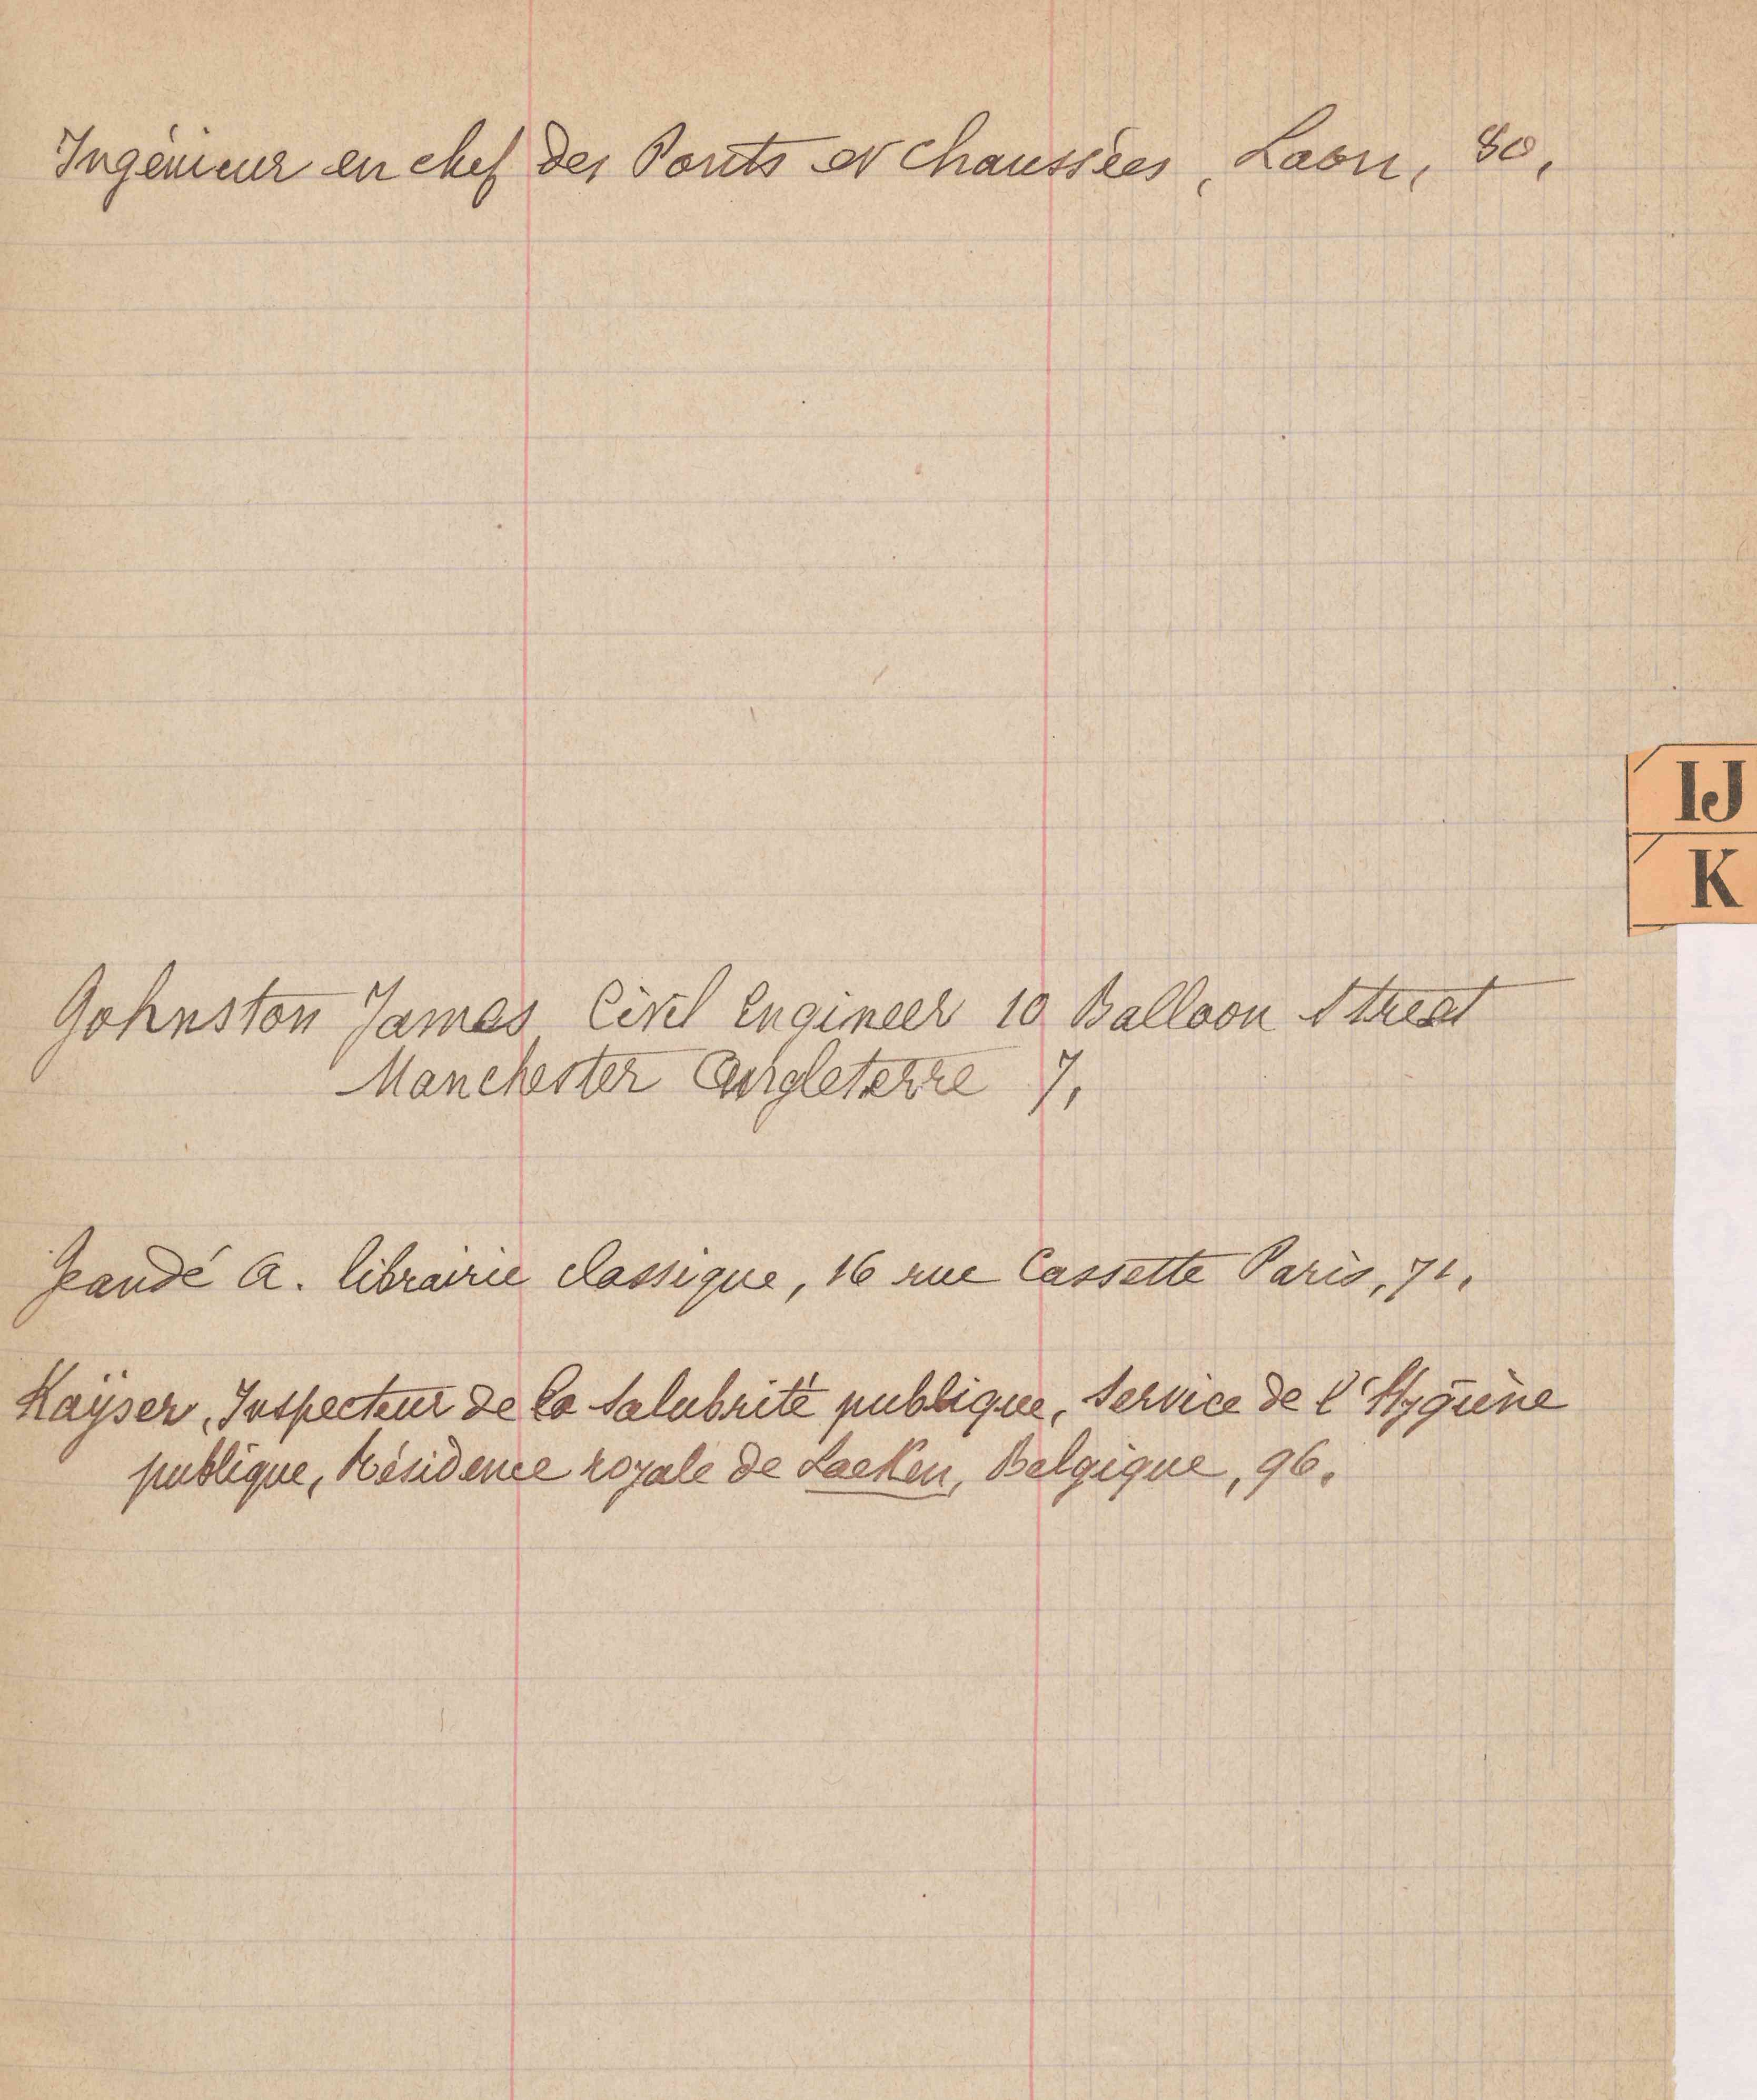 Ingénieur en chef des Ponts et Chaussées, Laon, 80,
IJ
K
Johnston James Civil Engineer 10 Balloon Street
Manchester Angleterre 7,
Jeandé A. librairie classique, 16 rue Cassette Paris, 71,
Kaÿser, Inspecteur de la Salubrité publique, Service de l'Hygiène
publique, Résidence royale de Laeken, Belgique, 96,